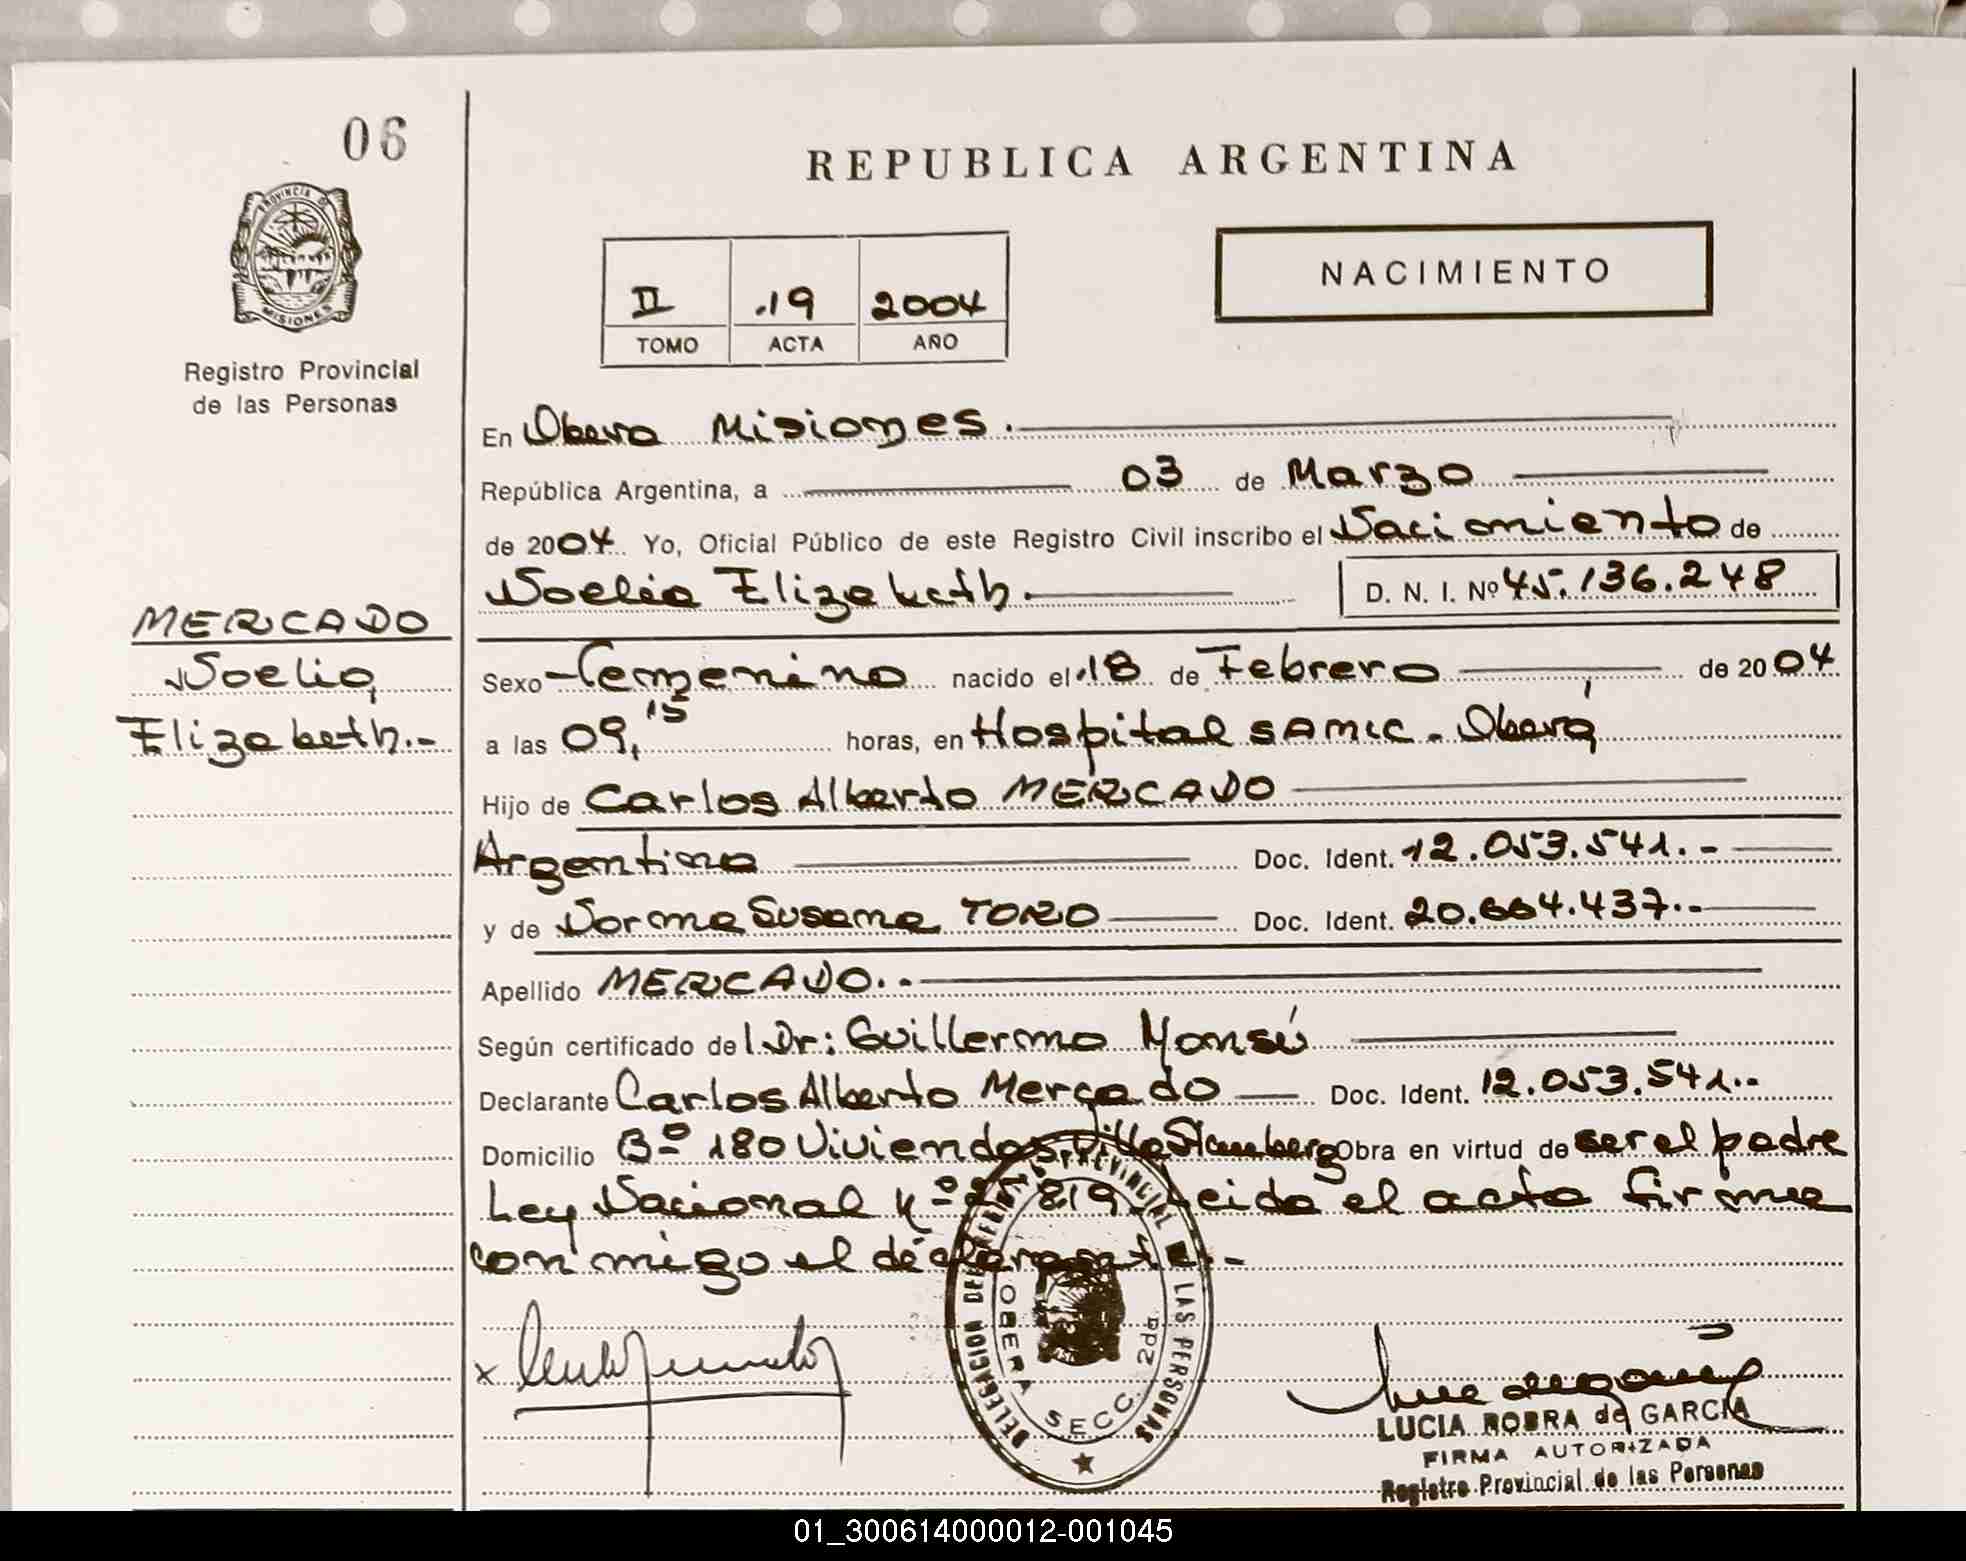 06
REPUBLICA ARGENTINA
PROVINCIA DE
MISIONES
Registro Provincial
de las Personas
II .19 2004
TOMO ACTA AÑO
NACIMIENTO
En Obera Misiones.
República Argentina, a 03 de Marzo
de 2004. Yo, Oficial Público de este Registro Civil inscribo el Nacimiento de
Noelia Elizabeth. D. N. I. Nº 45.136.248
MERCADO
Noelia
Elizabeth.-
Sexo Femenino nacido el 18 de Febrero de 2004
a las 09,15 horas, en Hospital SAMIC - Oberá
Hijo de Carlos Alberto MERCADO
Argentino Doc. Ident. 12.053.541.-
y de Norma Susana TORO Doc. Ident. 20.664.437.-
Apellido MERCADO.-
Según certificado del Dr: Guillermo
Declarante Carlos Alberto Mercado Doc. Ident. 12.053.541.-
Domicilio Bº 180 Viviendas, Villa Obra en virtud de ser el padre
Ley Nacional Nº 819 leida el acta firma
conmigo el declarante.-
DELEGACION DEL REGISTRO PROVINCIAL DE LAS PERSONAS
OBERA SECC. 2da.
LUCIA ROBRA de GARCIA
FIRMA AUTORIZADA
Registro Provincial de las Personas
01_300614000012-001045